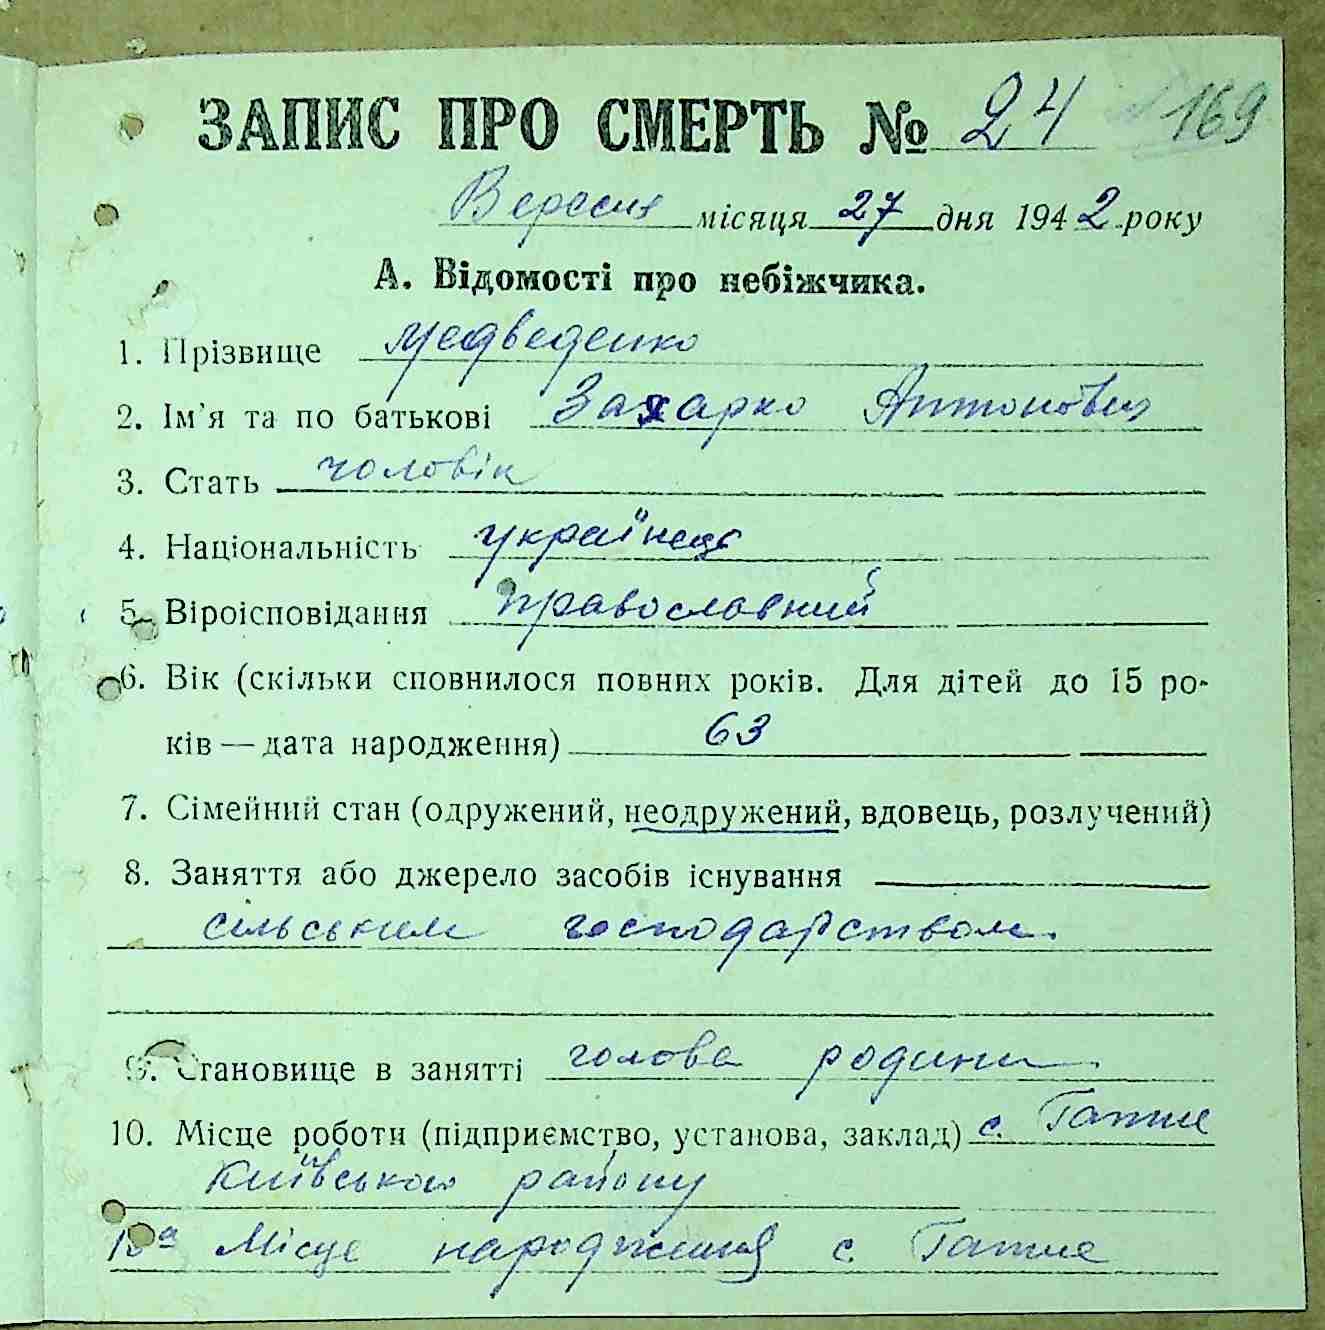 ЗАПИС ПРО СМЕРТЬ № 24 169
Вересня місяця 27 дня 1942 року
А. Відомості про небіжчика.
1. Прізвище Медведенко
2. Ім'я та по батькові Захарко Антонович
3. Стать чоловік
4. Національність українець
5. Віроісповідання православний
6. Вік (скільки сповнилося повних років. Для дітей до 15 ро-
ків — дата народження) 63
7. Сімейний стан (одружений, неодружений, вдовець, розлучений)
8. Заняття або джерело засобів існування
сільським господарством
9. Становище в занятті голова родини
10. Місце роботи (підприємство, установа, заклад) с. Гатне
Київського району
10а Місце народження с. Гатне